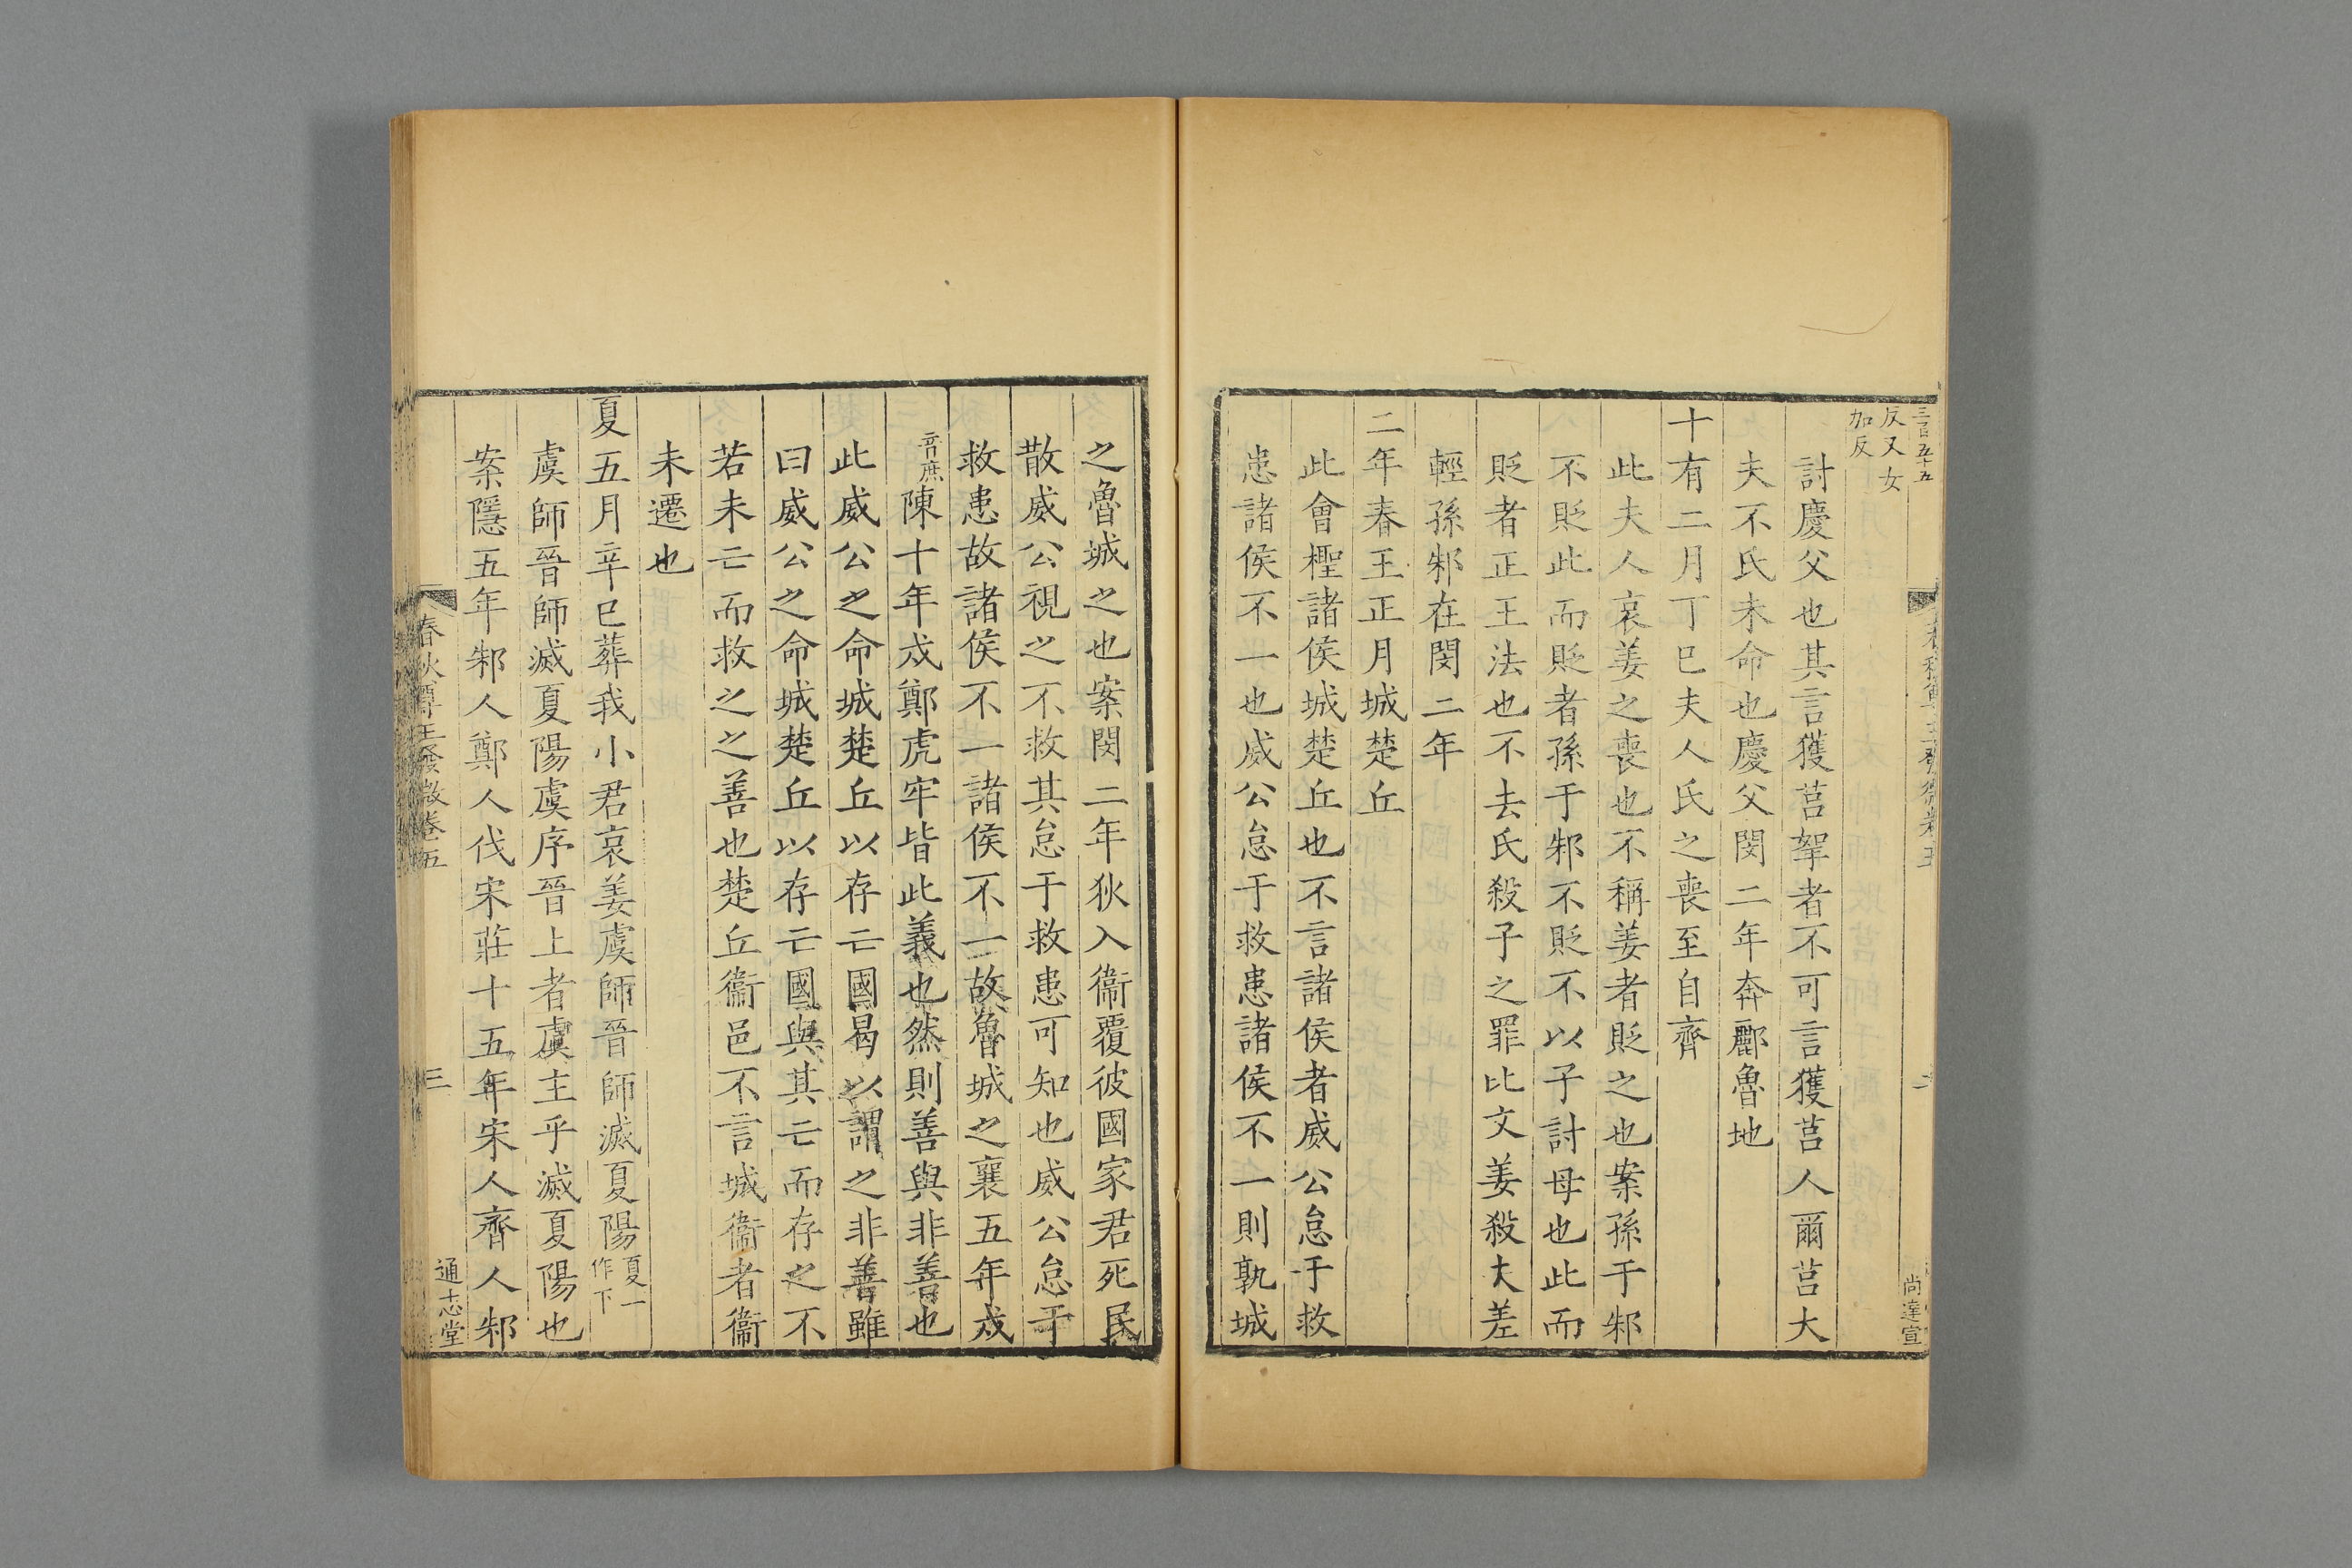 三百五十五
尚達宣
反又女
加反
討慶父也其言獲莒挐者不可言獲莒人爾莒大
夫不氏未命也慶父閔二年奔酈魯地
十有二月丁巳夫人氏之喪至自齊
此夫人哀姜之喪也不稱姜者貶之也案孫于邾
不貶此而貶者孫于邾不貶不以子討母也此而
貶者正王法也不去氏殺子之罪比文姜殺夫差
輕孫邾在閔二年
二年春王正月城楚丘
此會檉諸侯城楚丘也不言諸侯者威公怠于救
患諸侯不一也威公怠于救患諸侯不一則孰城
之魯城之也案閔二年狄入衞覆彼國家君死民
散威公視之不救其怠于救患可知也威公怠于
救患故諸侯不一諸侯不一故魯城之襄五年戍
陳十年戍鄭虎牢皆此義也然則善與非善也
此威公之命城楚丘以存亡國曷以謂之非善雖
曰威公之命城楚丘以存亡國與其亡而存之不
若未亡而救之之善也楚丘衞邑不言城衞者衞
未遷也
夏五月辛巳葬我小君哀姜虞師晉師滅夏陽夏一作下
虞師晉師滅夏陽虞序晉上者虞主乎滅夏陽也
案隱五年邾人鄭人伐宋莊十五年宋人齊人邾
春秋尊王發微卷五
三
通志堂